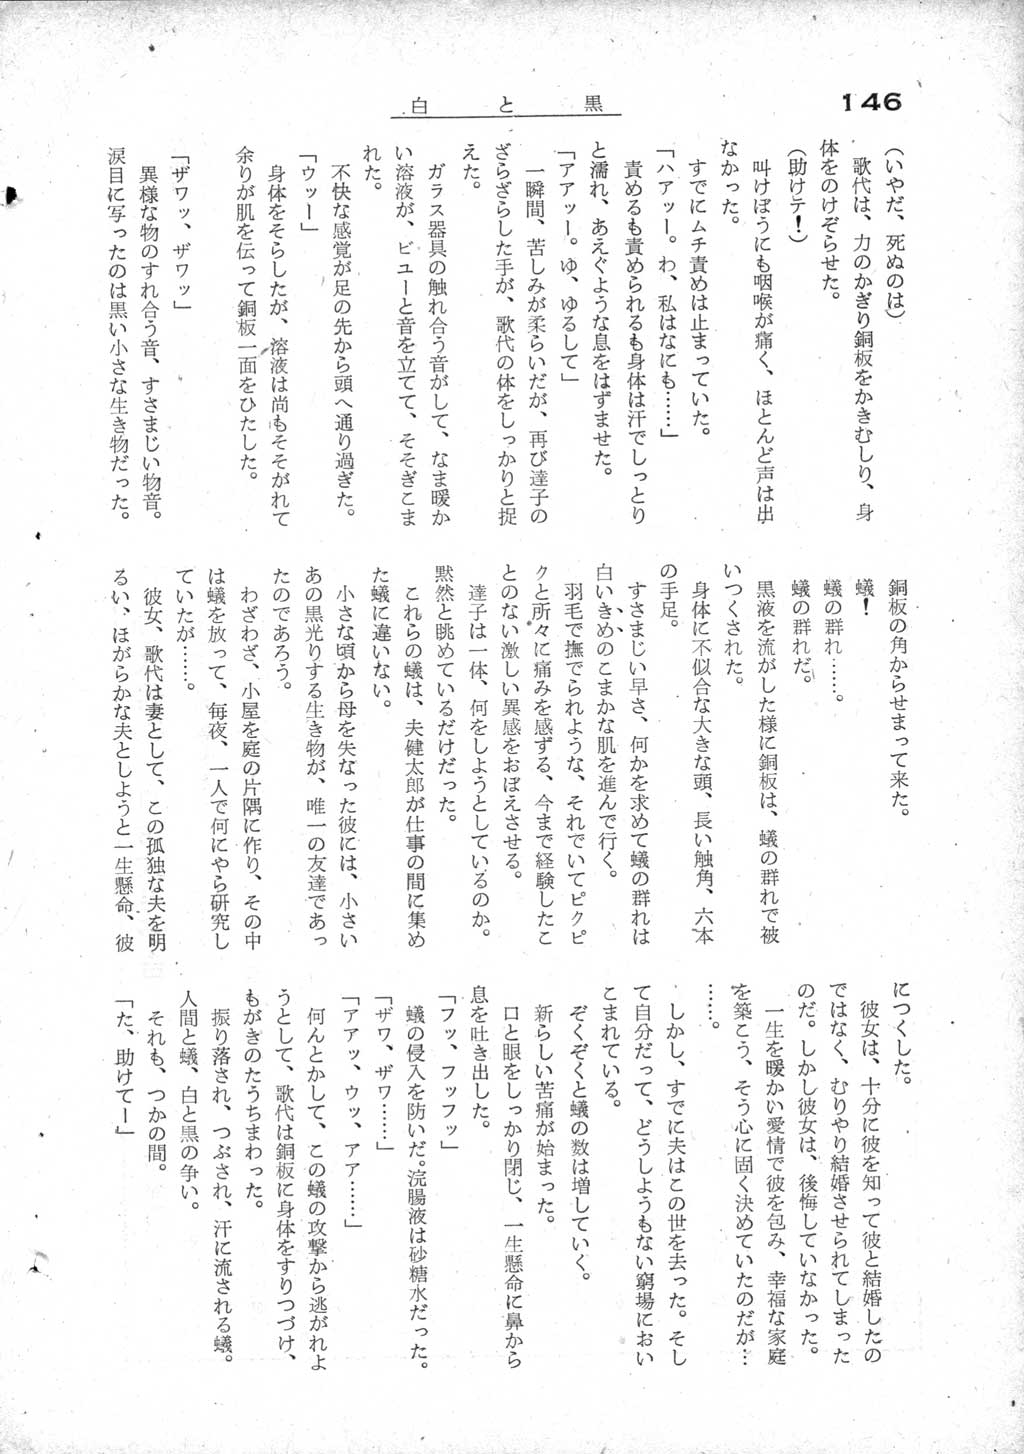 146
白と黒
(いやだ、死ぬのは)
歌代は、力のかぎり銅板をかきむしり、身
体をのけぞらせた。
(助けテ!)
叫けぼうにも咽喉が痛く、ほとんど声は出
なかった。
すでにムチ責めは止まっていた。
「ハアッー。わ、私はなにも……」
責めるも責められるも身体は汗でしっとり
と濡れ、あえぐような息をはずませた。
「アアッー。ゆ、ゆるして」
一瞬間、苦しみが柔らいだが、再び達子の
ざらざらした手が、歌代の体をしっかりと捉
えた。
ガラス器具の触れ合う音がして、なま暖か
い溶液が、ビューと音を立てて、そそぎこま
れた。
不快な感覚が足の先から頭へ通り過ぎた。
「ウッー」
身体をそらしたが、溶液は尚もそそがれて
余りが肌を伝って銅板一面をひたした。
「ザワッ、ザワッ」
異様な物のすれ合う音、すさまじい物音。
涙目に写ったのは黒い小さな生き物だった。
銅板の角からせまって来た。
蟻!
蟻の群れ……。
蟻の群れだ。
黒液を流がした様に銅板は、蟻の群れで被
いつくされた。
身体に不似合な大きな頭、長い触角、六本
の手足。
すさまじい早さ、何かを求めて蟻の群れは
白いきめのこまかな肌を進んで行く。
羽毛で撫でられような、それでいてピクピ
クと所々に痛みを感ずる、今まで経験したこ
とのない激しい異感をおぼえさせる。
達子は一体、何をしようとしているのか。
黙然と眺めているだけだった。
これらの蟻は、夫健太郎が仕事の間に集め
た蟻に違いない。
小さな頃から母を失なった彼には、小さい
あの黒光りする生き物が、唯一の友達であっ
たのであろう。
わざわざ、小屋を庭の片隅に作り、その中
は蟻を放って、毎夜、一人で何にやら研究し
ていたが……。
彼女、歌代は妻として、この孤独な夫を明
るい、ほがらかな夫としようと一生懸命、彼
につくした。
彼女は、十分に彼を知って彼と結婚したの
ではなく、むりやり結婚させられてしまった
のだ。しかし彼女は、後悔していなかった。
一生を暖かい愛情で彼を包み、幸福な家庭
を築こう、そう心に固く決めていたのだが…
……。
しかし、すでに夫はこの世を去った。そし
て自分だって、どうしようもない窮場におい
こまれている。
ぞくぞくと蟻の数は増していく。
新らしい苦痛が始まった。
口と眼をしっかり閉じ、一生懸命に鼻から
息を吐き出した。
「フッ、フッフッ」
蟻の侵入を防いだ。浣腸液は砂糖水だった。
「ザワ、ザワ……」
「アアッ、ウッ、アア……」
何んとかして、この蟻の攻撃から逃がれよ
うとして、歌代は銅板に身体をすりつづけ、
もがきのたうちまわった。
振り落され、つぶされ、汗に流される蟻。
人間と蟻、白と黒の争い。
それも、つかの間。
「た、助けてー」